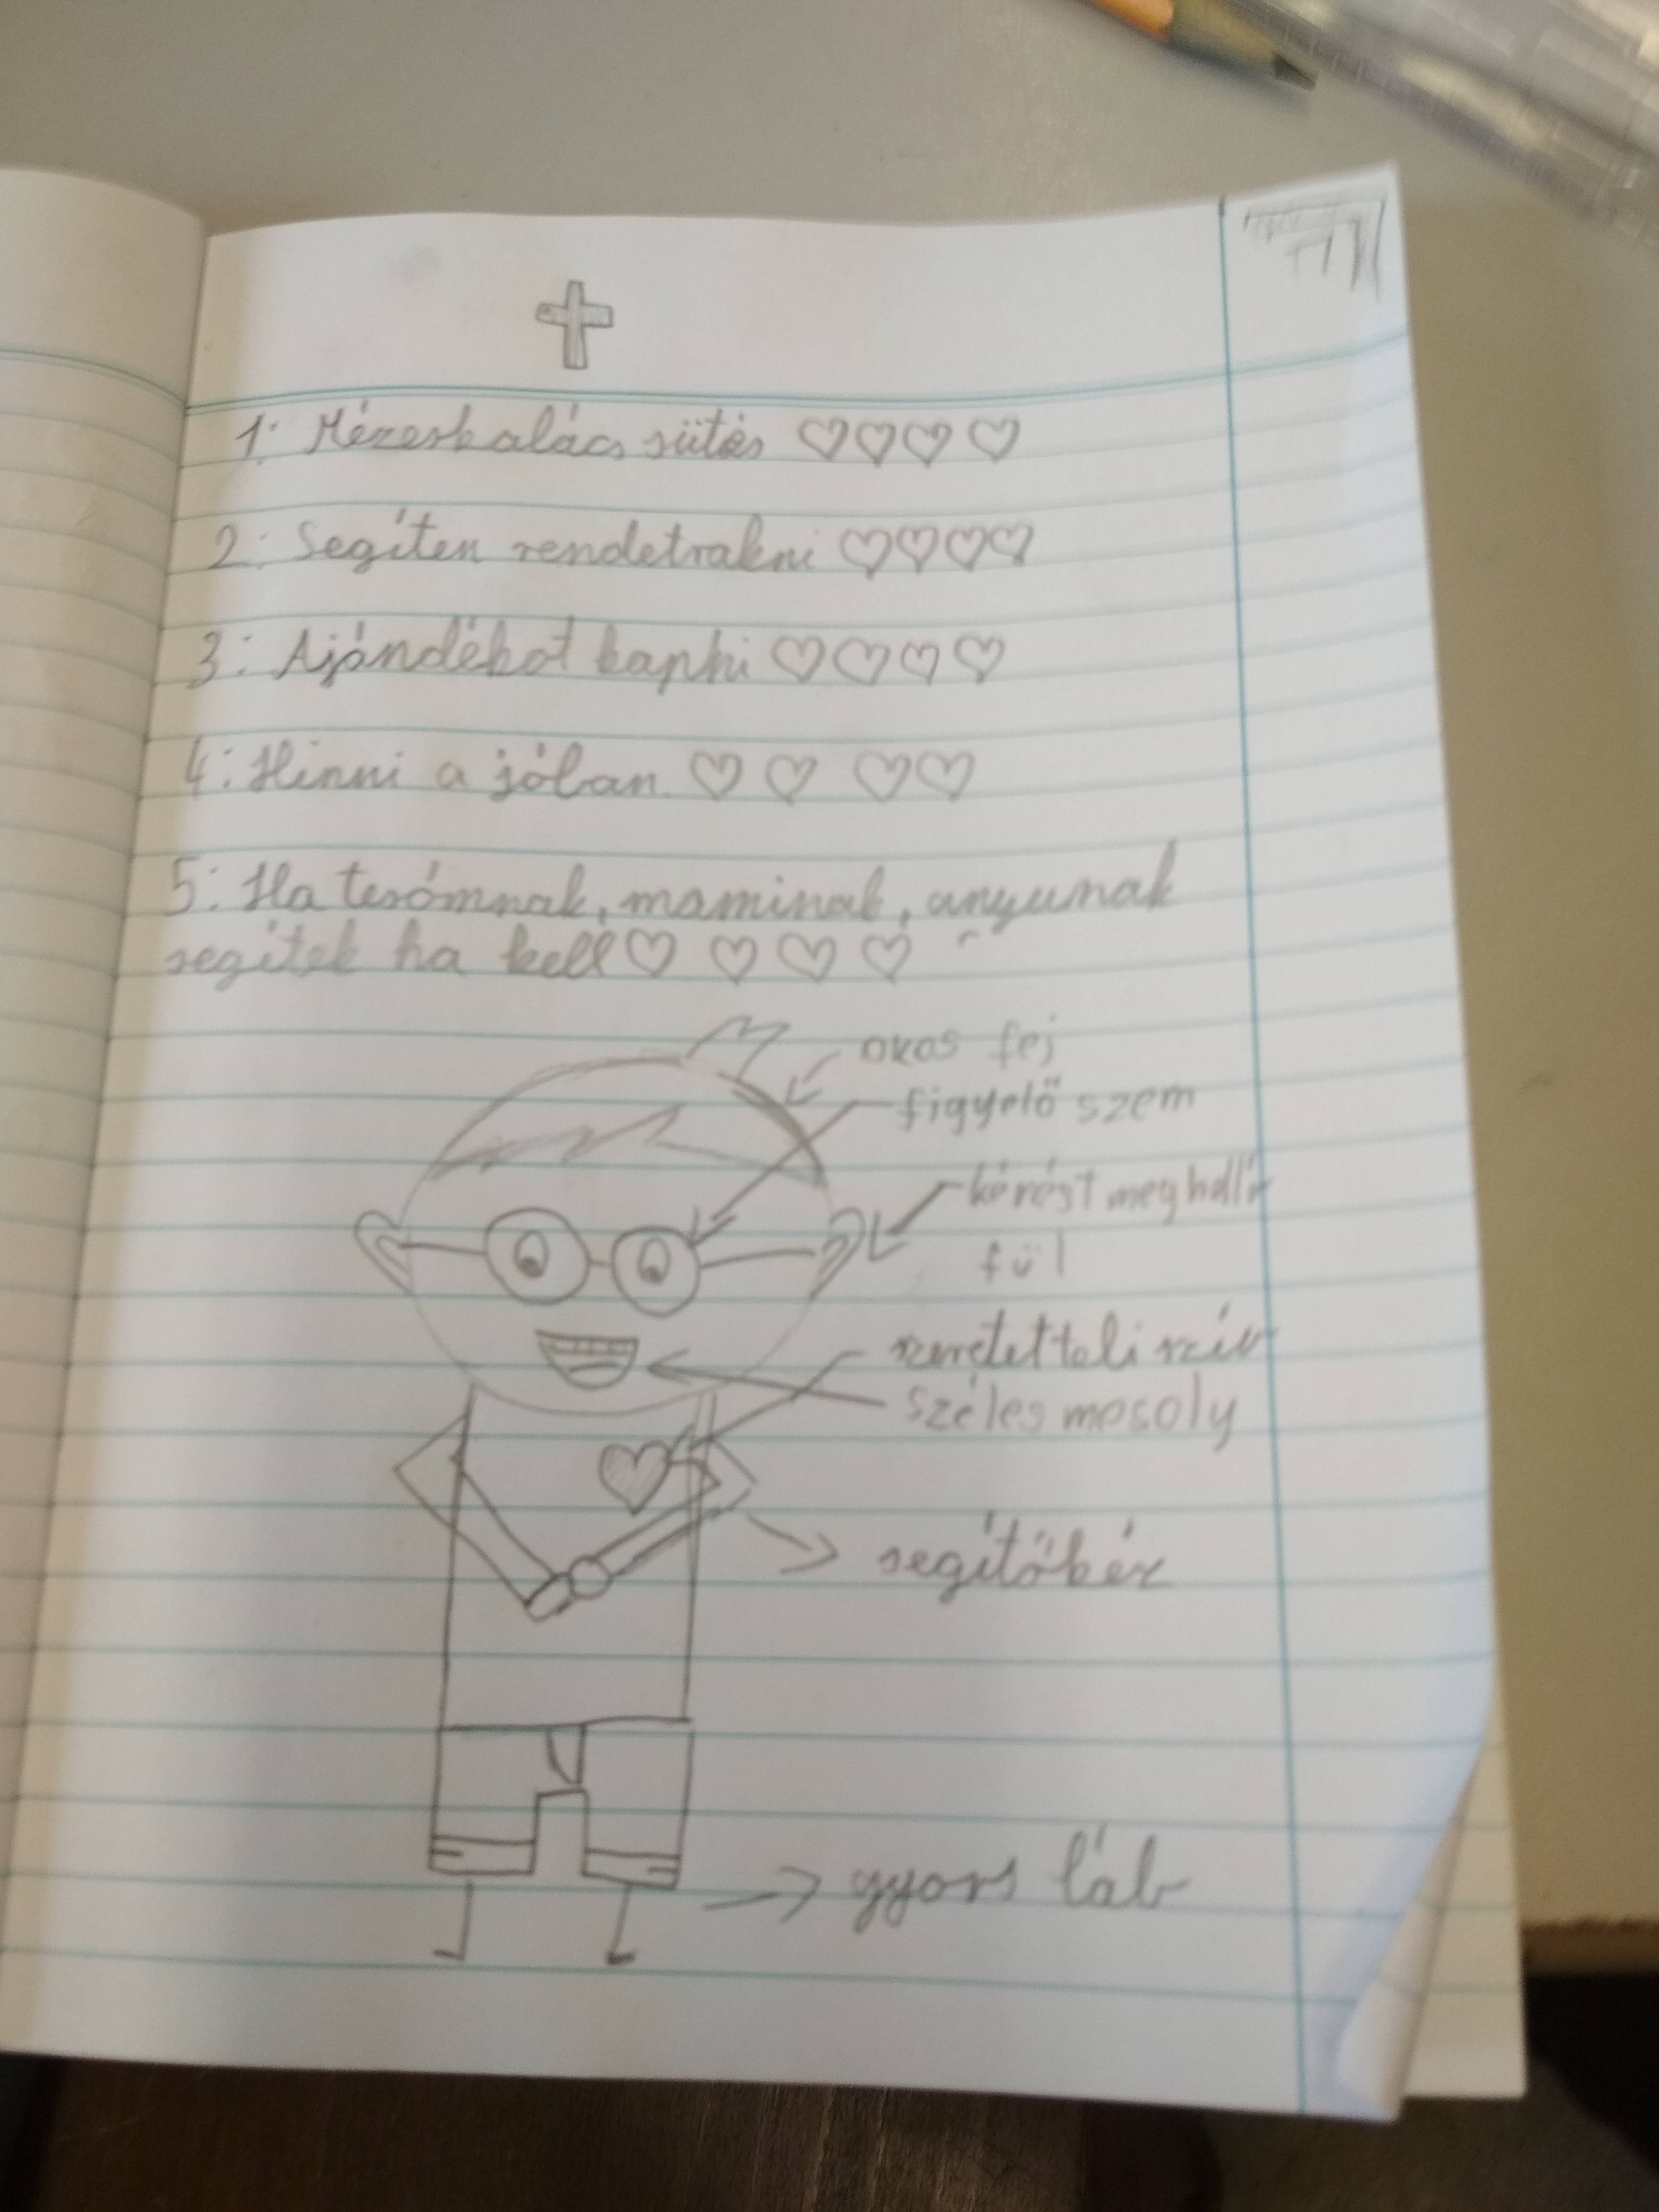 1: Mézeskalács sütés ♡♡♡♡
2: Segíten rendetrakni ♡♡♡♡
3: Ajándékot kapni ♡♡♡♡
4: Hinni a jóban. ♡♡♡♡
5: Ha tesómnak, maminak, anyunak
segítek ha kell ♡♡♡♡
okos fej
figyelő szem
kérést meghalló
fül
szeretetteli szív
széles mosoly
segítőkéz
gyors láb